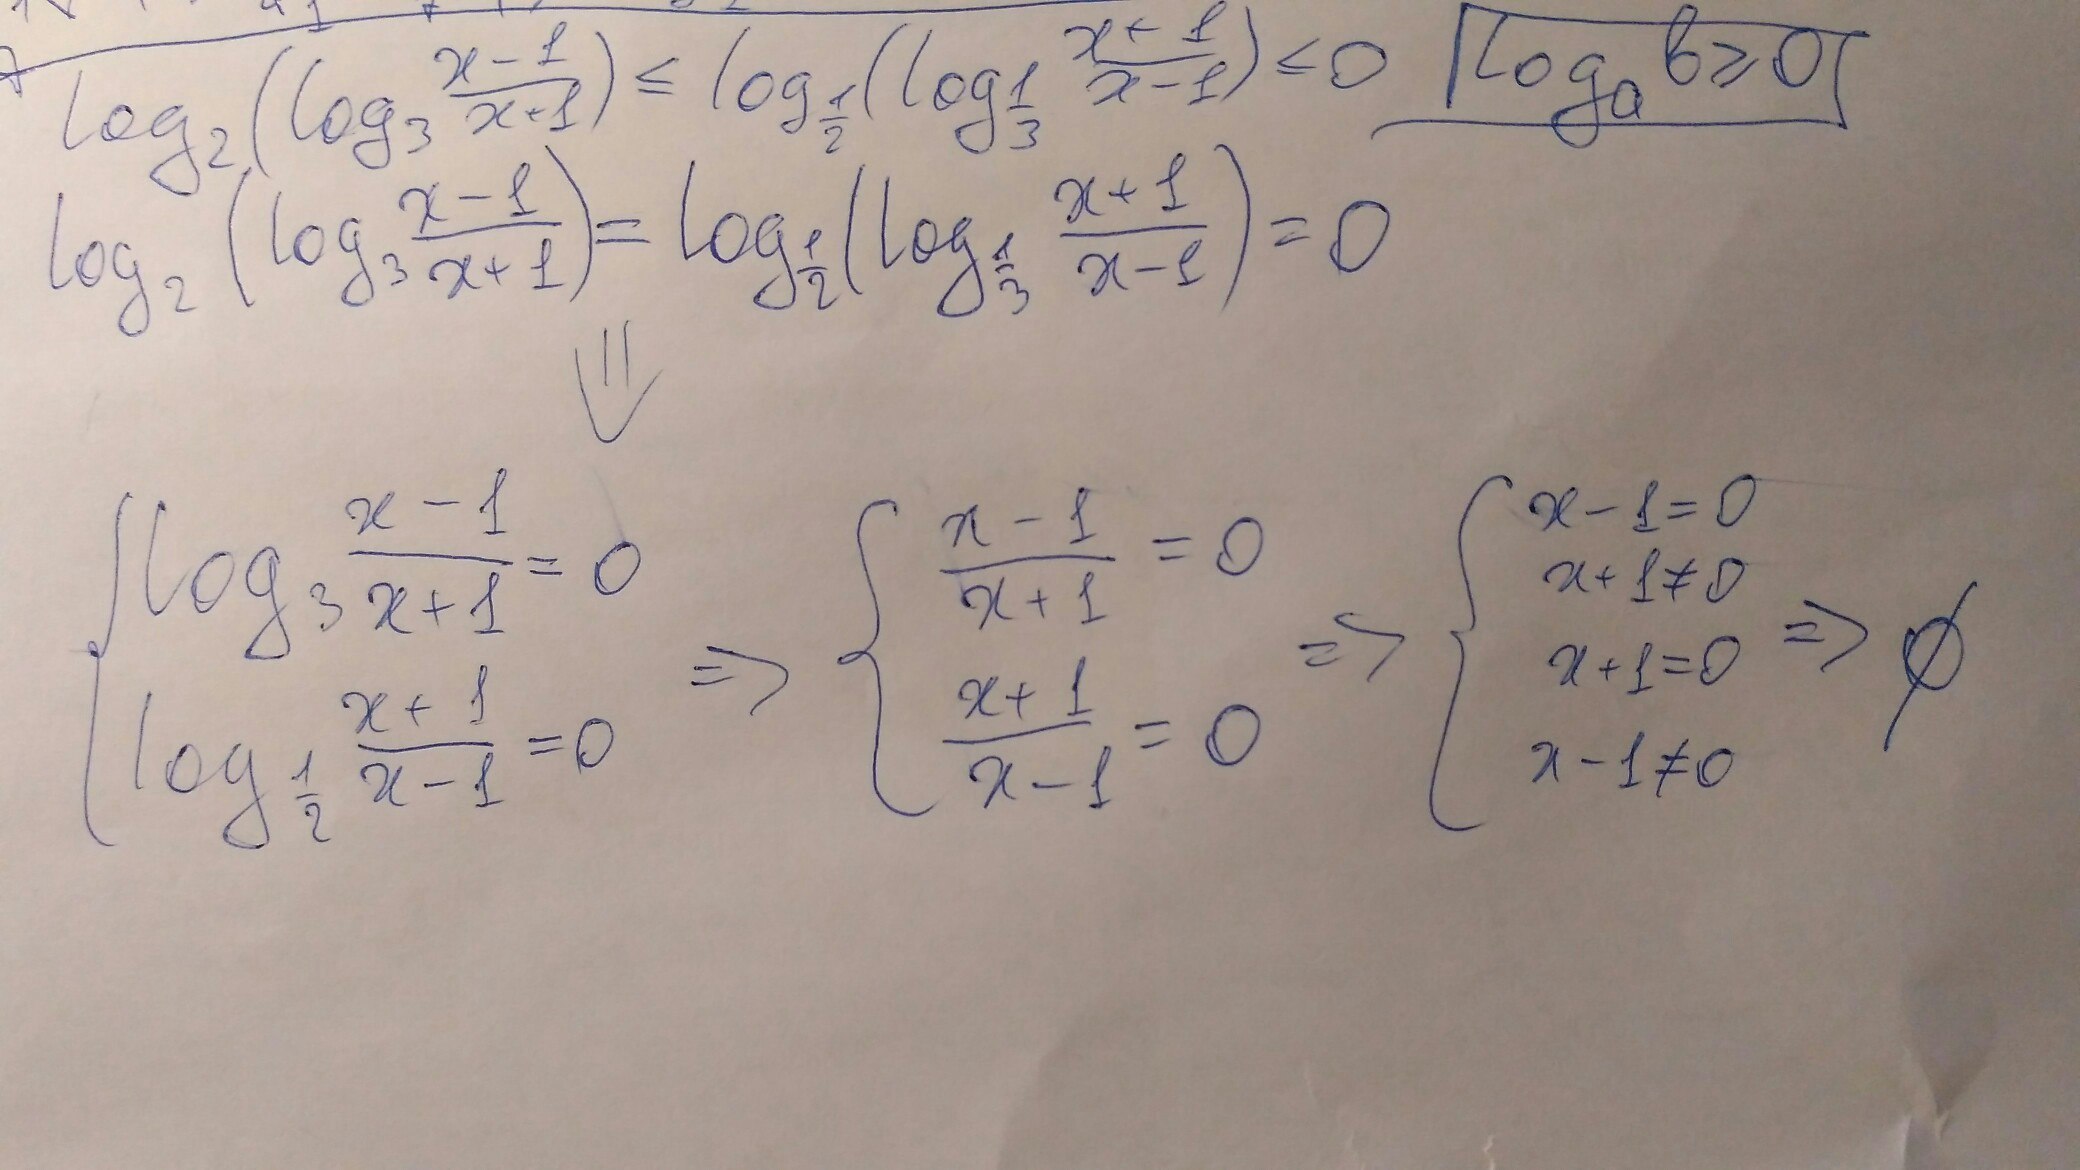 log₂(log₃ (x-1)/(x+1)) ≤ log_{1/2}(log_{1/3} (x+1)/(x-1)) ≤ 0 log_a b ≥ 0
log₂(log₃ (x-1)/(x+1)) = log_{1/2}(log_{1/3} (x+1)/(x-1)) = 0
⇓
{ log₃ (x-1)/(x+1) = 0 ; log_{1/2} (x+1)/(x-1) = 0 => { (x-1)/(x+1) = 0 ; (x+1)/(x-1) = 0 => { x-1=0 ; x+1≠0 ; x+1=0 ; x-1≠0 => ∅